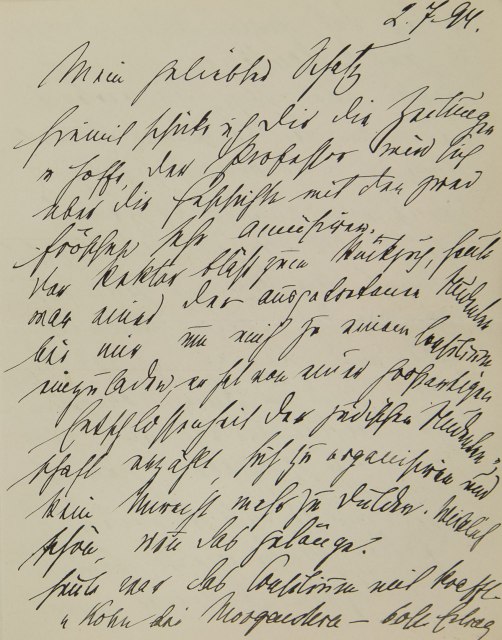 2.7.94.
Mein geliebter Schatz
hiemit schicke ich Dir die Zeitungen
u hoffe, der Professor wird sich
über die Geschichte mit den zwei
Fröschen sehr amüsiren.
Der Rektor bläst zum Rückzug, heute
war einer der ausgetretenen
bei mir um mich zu einem Consilium
einzuladen, er hat von einer großartigen
Entschlossenheit der jüdischen Studenten-
schaft erzählt, sich zu organisiren und
kein Unrecht mehr zu dulden.
schön, wenn das gelänge.
Heute war das Consilium mit
u Kohn bei